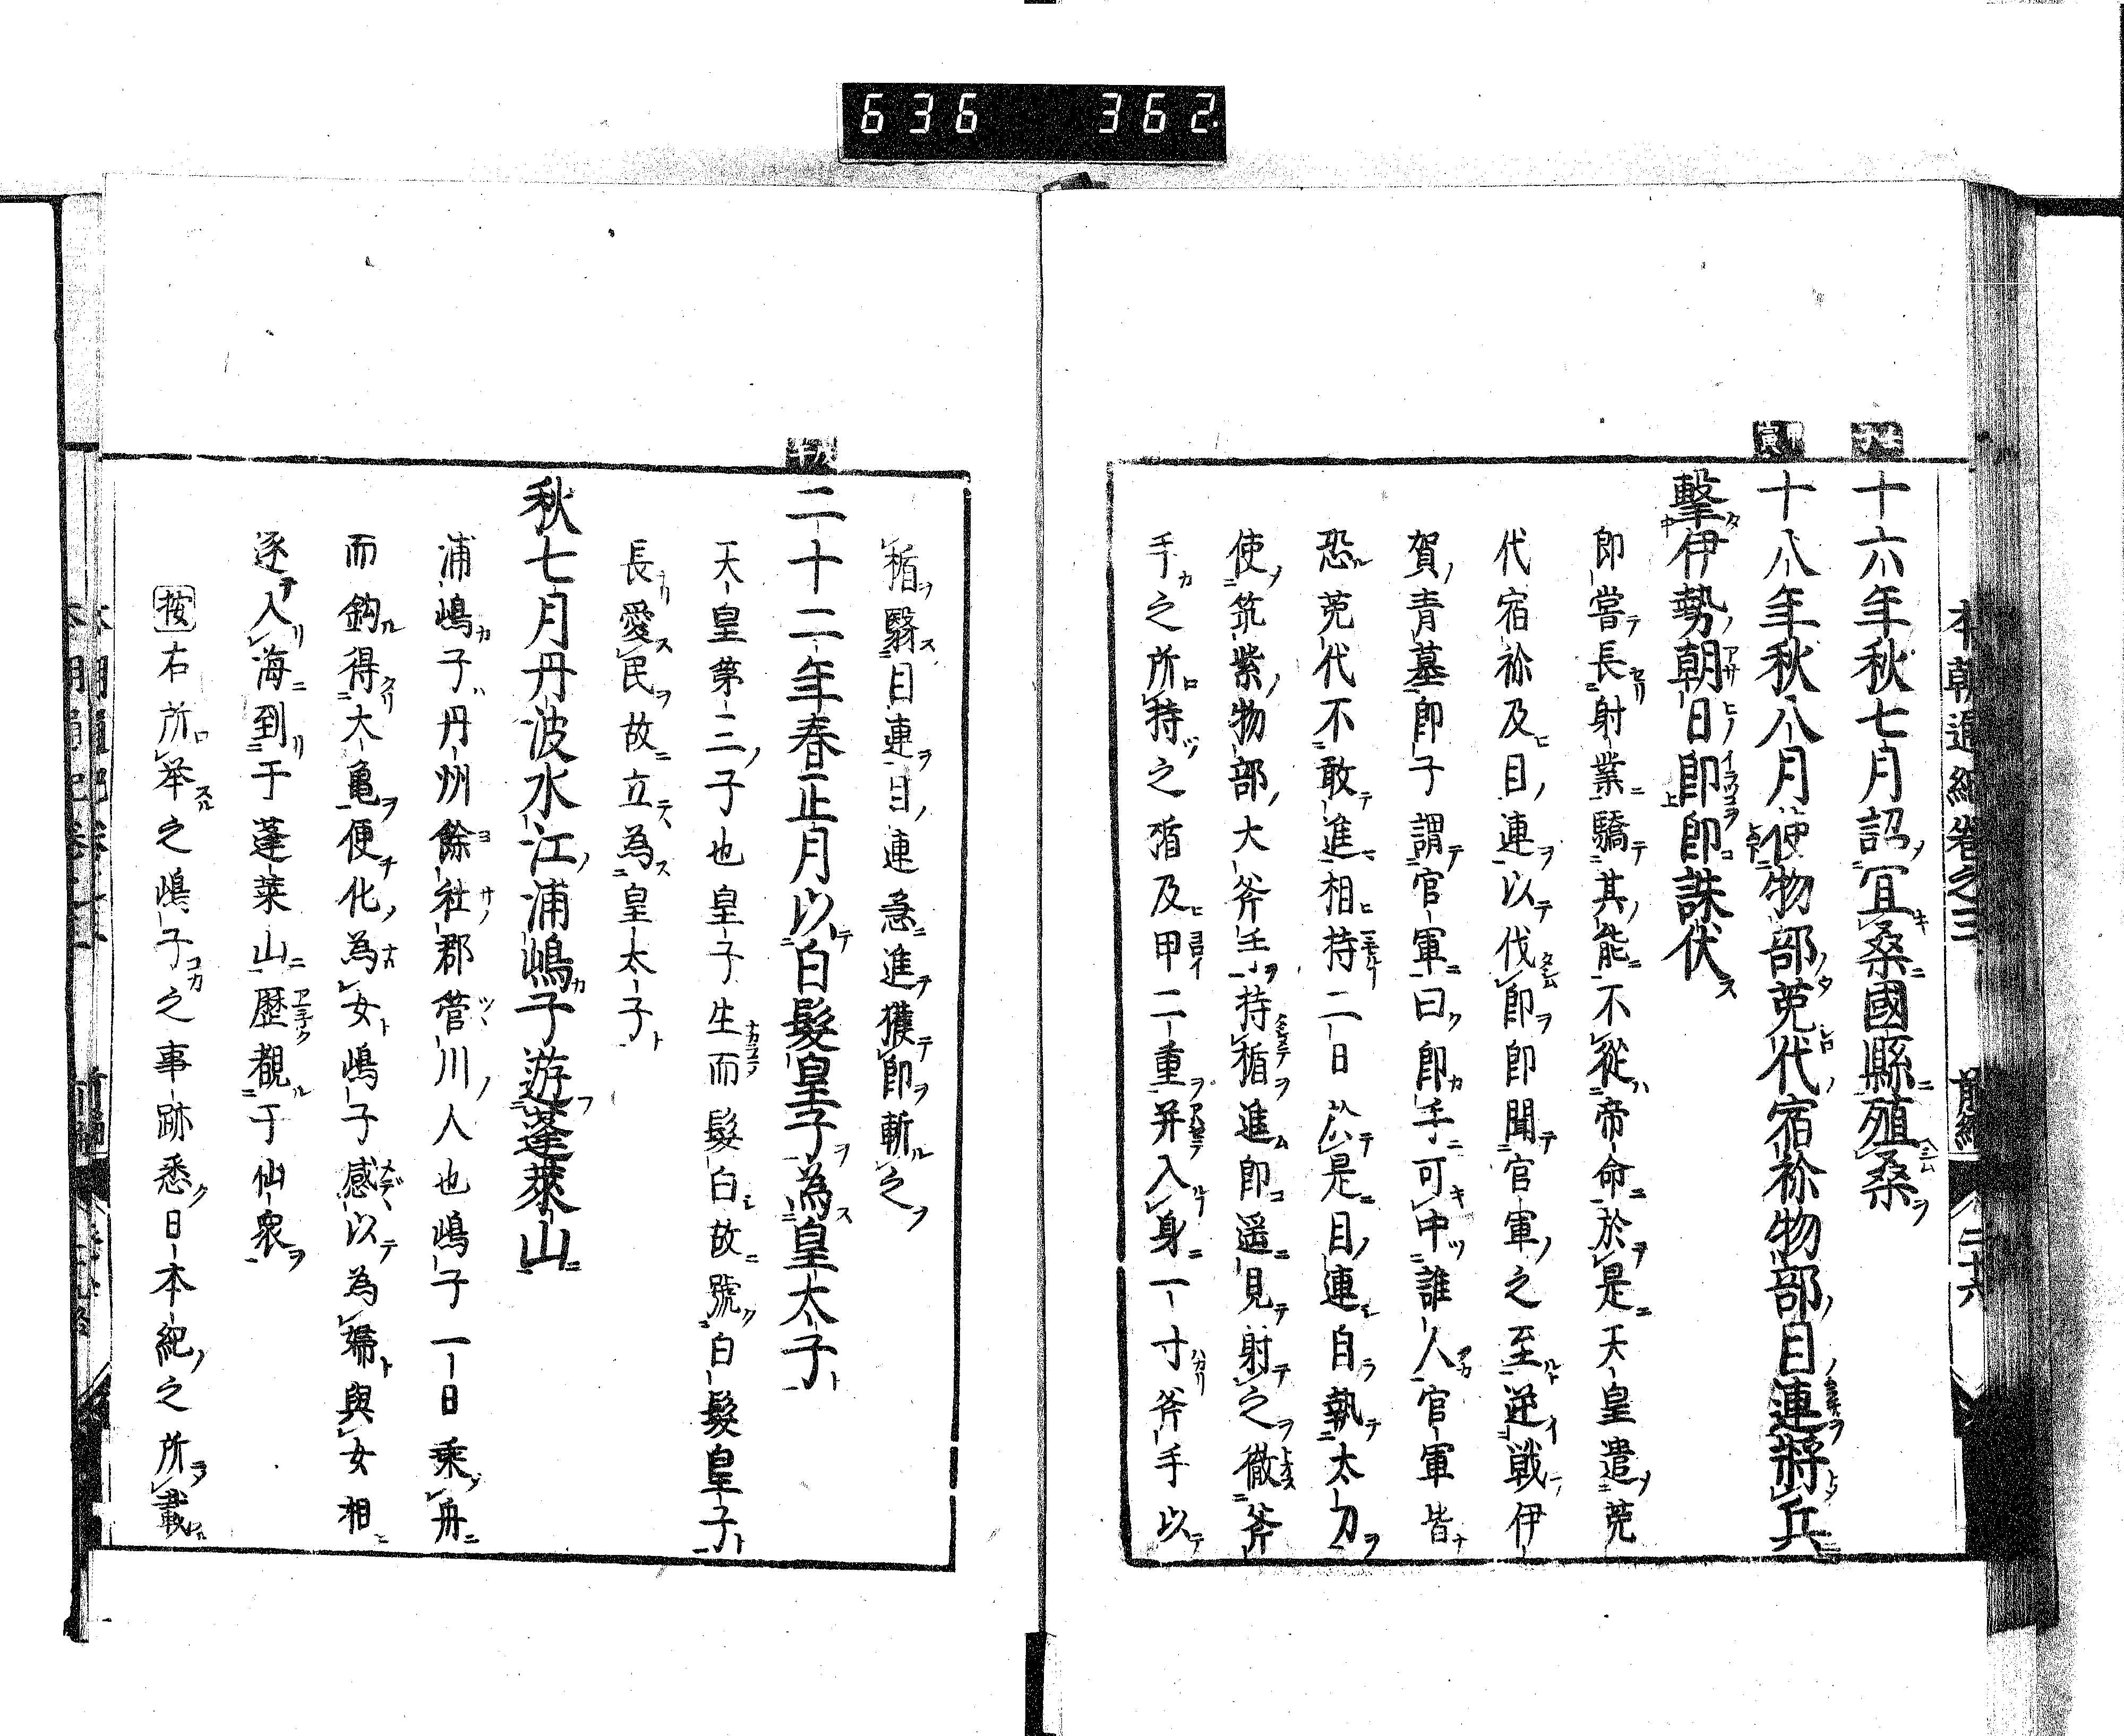 636 362
本朝通紀卷之三 前編 二十六
壬子
十六年秋七月詔宜桑國縣殖桑
甲寅
十八年秋八月使物部菟代宿祢物部目連將兵
擊伊勢朝日郎郎誅伏
郎嘗長射業驕其能不從帝命於是天皇遣菟
代宿祢及目連以伐郎郎聞官軍之至逆戦伊
賀青墓郎子謂官軍曰郎手可中誰人官軍皆
恐菟代不敢進相持二日於是目連自執太刀
使筑紫物部大斧手持楯進郎遥見射之徹斧
手之所持之楯及甲二重并入身一寸斧手以
楯翳目連目連急進獲郎斬之
二十二年春正月以白髮皇子為皇太子
天皇第三子也皇子生而髮白故號白髮皇子
長愛民故立為皇太子
秋七月丹波水江浦嶋子遊蓬萊山
浦嶋子丹州餘社郡管川人也嶋子一日乗舟
而釣得大亀便化為女嶋子感以為婦與女相
逐入海到于蓬萊山歷覩于仙衆
按右所举之嶋子之事跡悉日本紀之所載